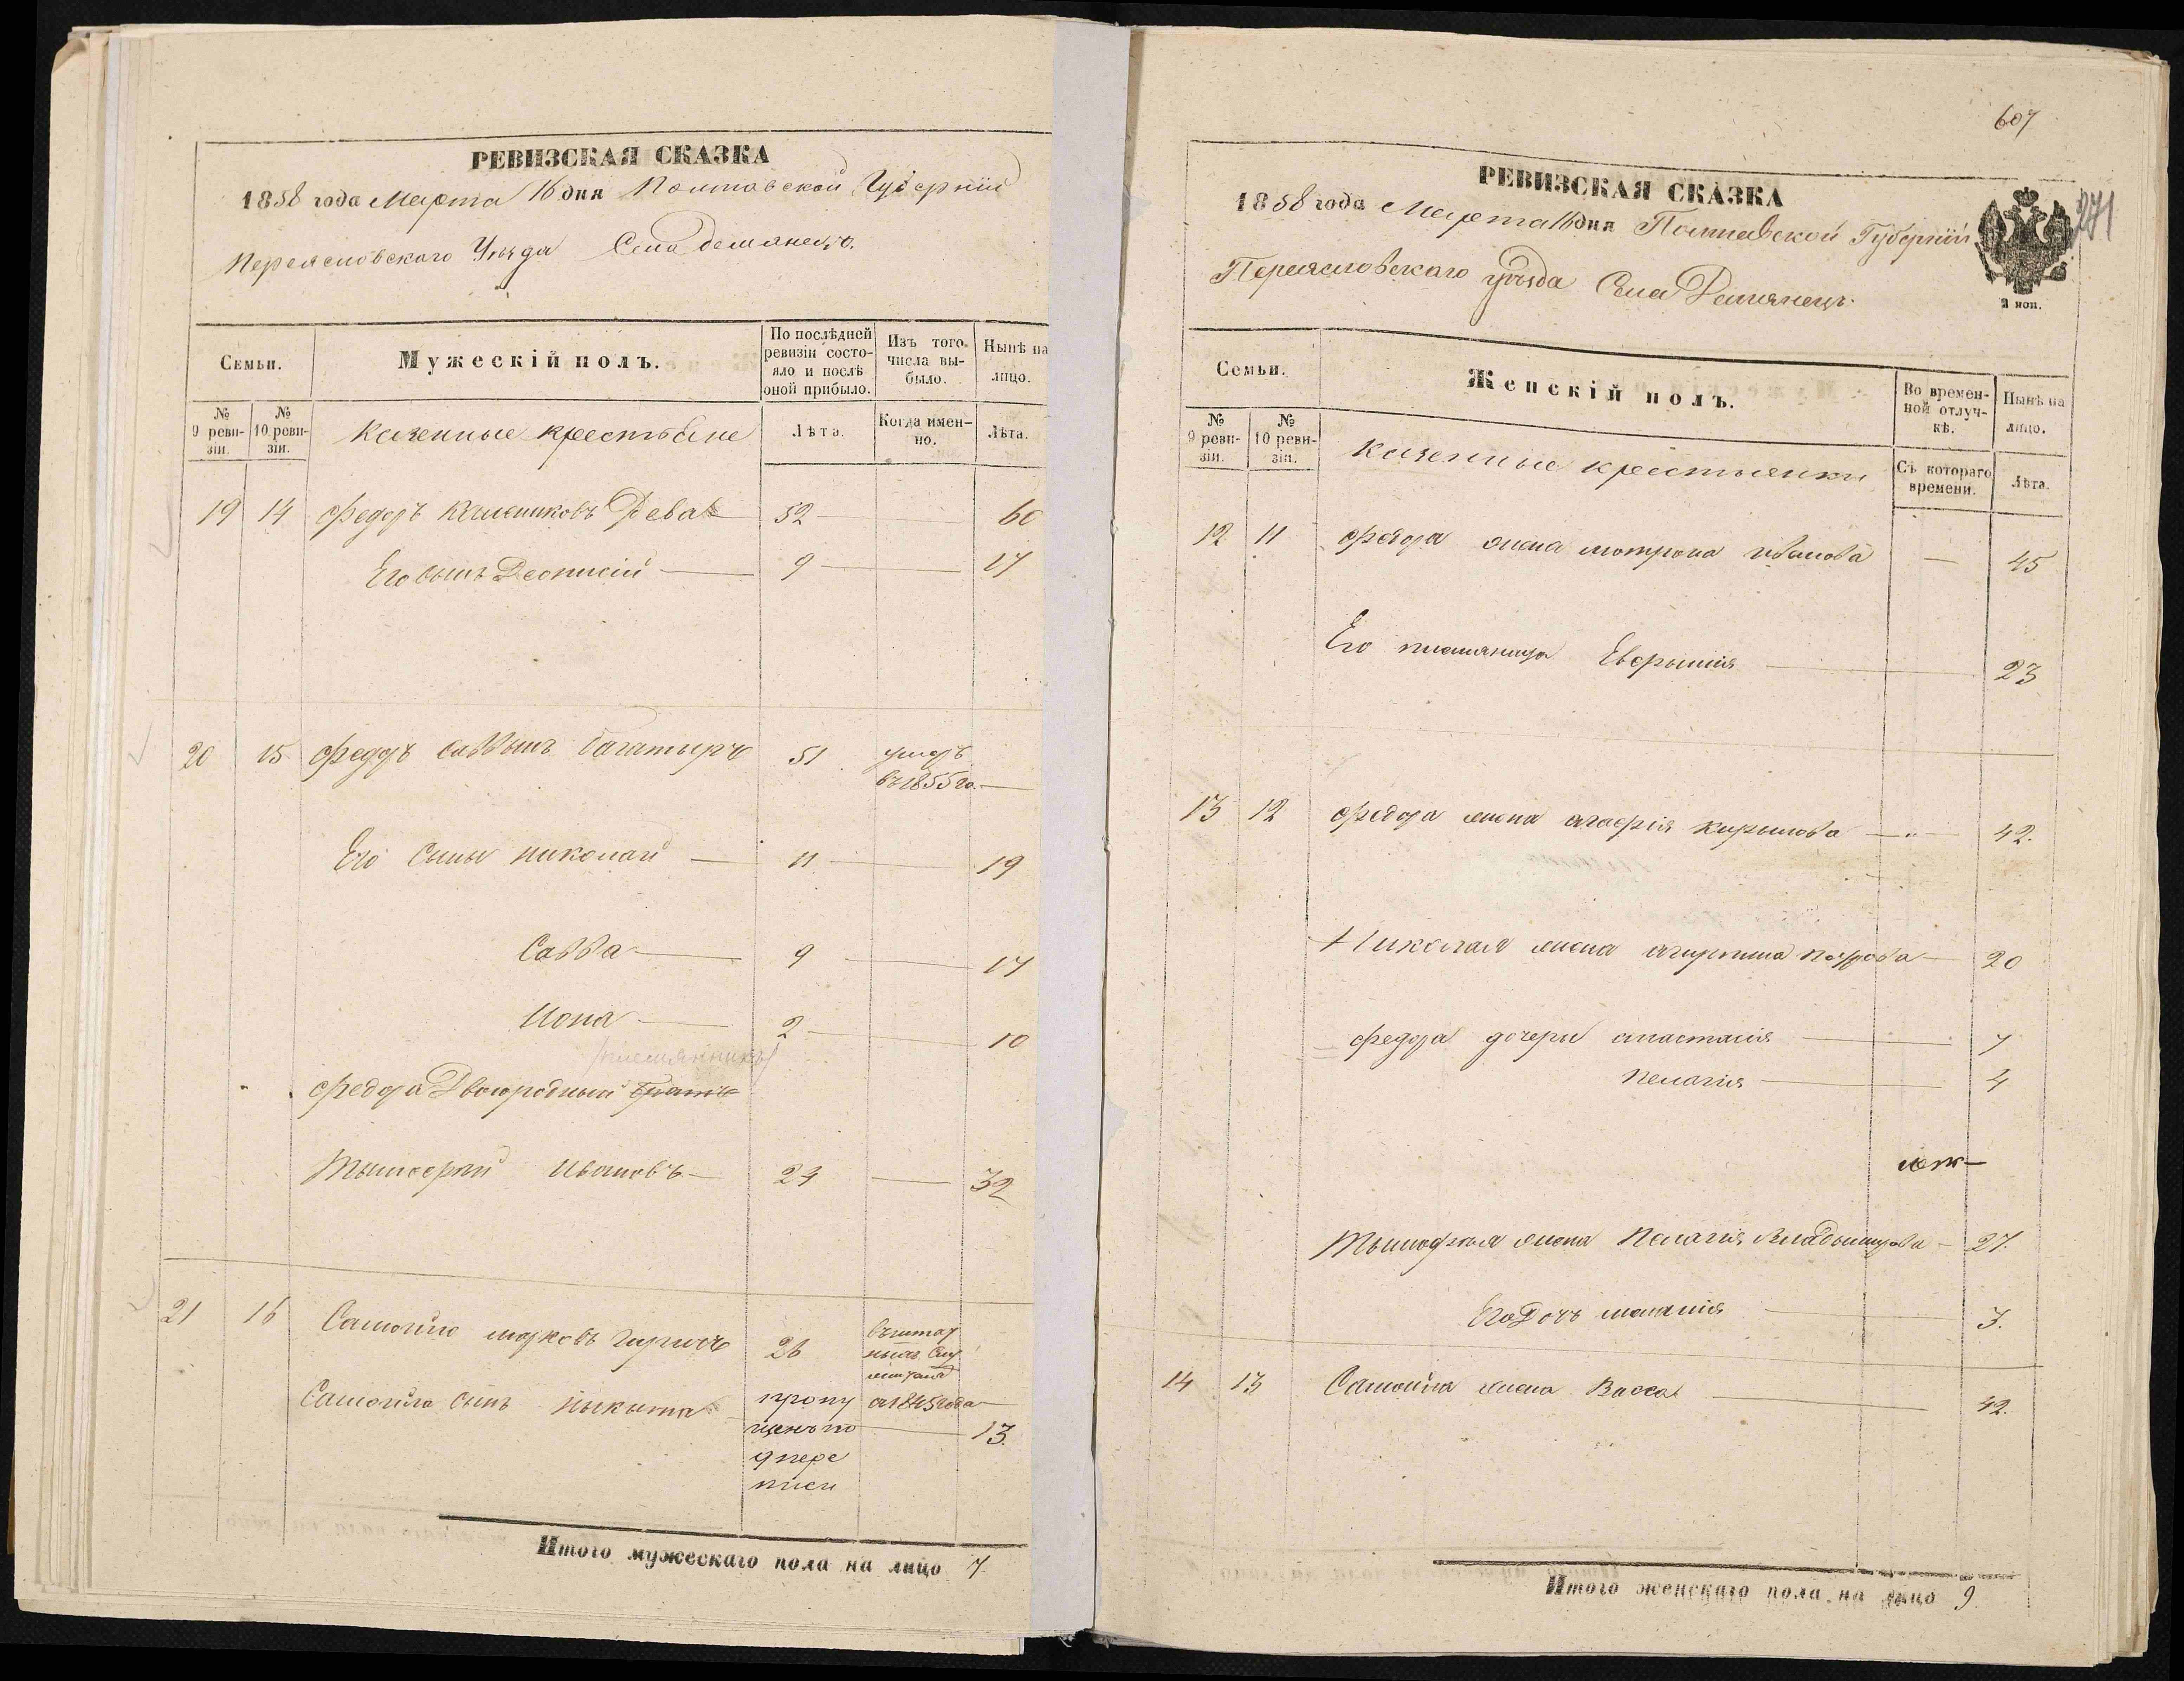 РЕВИЗСКАЯ СКАЗКА
1858 года Марта 16 дня Полтавской Губерніи
Переясловского Уѣзда Села
Семьи.
Мужескій полъ.
По послѣдней ревизіи состояло и послѣ оной прибыло.
Изъ того числа выбыло.
Нынѣ на лицо.
№ 9 ревизіи.
№ 10 ревизіи.
Казенные крестьяне
Лѣта.
Когда именно.
Лѣта.
19 14 Федоръ Рева 52 — — 60
Его сынъ Деонисій — 9 — — 17
20 15 Федоръ Саввынъ багатыръ 51 умеръ
въ 1855 го. —
Его Сыны николай — 11 — — 19
Савва — 9 — — 17
Иона — 2 — — 10
племянникъ
Федора Двоюродный братъ
Тымофрий Ивановъ — 24 — 32
21 16 Самойло марковъ 26
Самойла сынъ ныкыта пропу с 1845 года —
щенъ по — 13.
9 пере
писи
Итого мужескаго пола на лицо 7.
607
271
РЕВИЗСКАЯ СКАЗКА
1858 года Марта 16 дня Полтавской Губерніи
Переясловскаго уѣзда Села Демянецъ.
2 коп.
Семьи.
Женскій полъ.
Во временной отлучкѣ.
Нынѣ на лицо.
№ 9 ревизіи.
№ 10 ревизіи.
Казенные крестьянки
Съ котораго времени.
Лѣта.
12 11 Федора жена мотрона иванова — 45
Его племяница Евфрынія — 23
13 12 Федора жена агафія Кирылова — „ — 42.
Николая жена Петрова — 20
Федора дочери анастасія — 7
пелагія — 4
Тымофрія жена Пелагія Владымирова — 27.
Его Дочъ меланія — 3.
14 13 Самойла жена Васса — 42.
Итого женскаго пола на лицо 9.